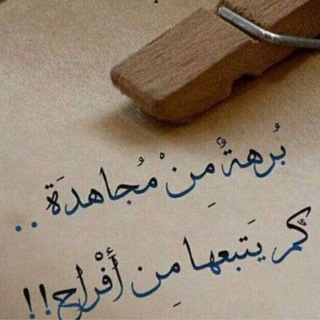 بُرهةٌ مِنْ مُجاهدَة ..
كم يَتبعها مِن أَفْراح!!